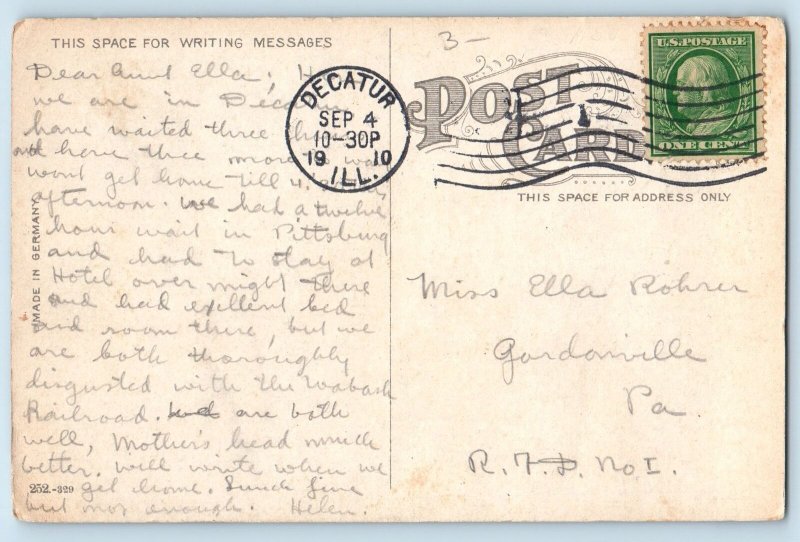 THIS SPACE FOR WRITING MESSAGES
Dear Aunt Ella; H
we are in Decatur
have waited three
and have three more to wait
wont get home till 4
afternoon. We had a twelve
hour wait in Pittsburg
and had to stay at
Hotel over night there
and had exellent bed
and room there, but we
are both thoroughly
disgusted with the Wabash
Railroad. are both
well, Mother's head much
better. Will write when we
get home. Lunch fine
but not enough. Helen.
MADE IN GERMANY
252.-329
DECATUR
SEP 4
10-30P
19 10
ILL.
3-
POST CARD
U.S. POSTAGE
ONE CENT
THIS SPACE FOR ADDRESS ONLY
Miss Ella Rohrer
Gordonville
Pa.
R.F.D. No I.